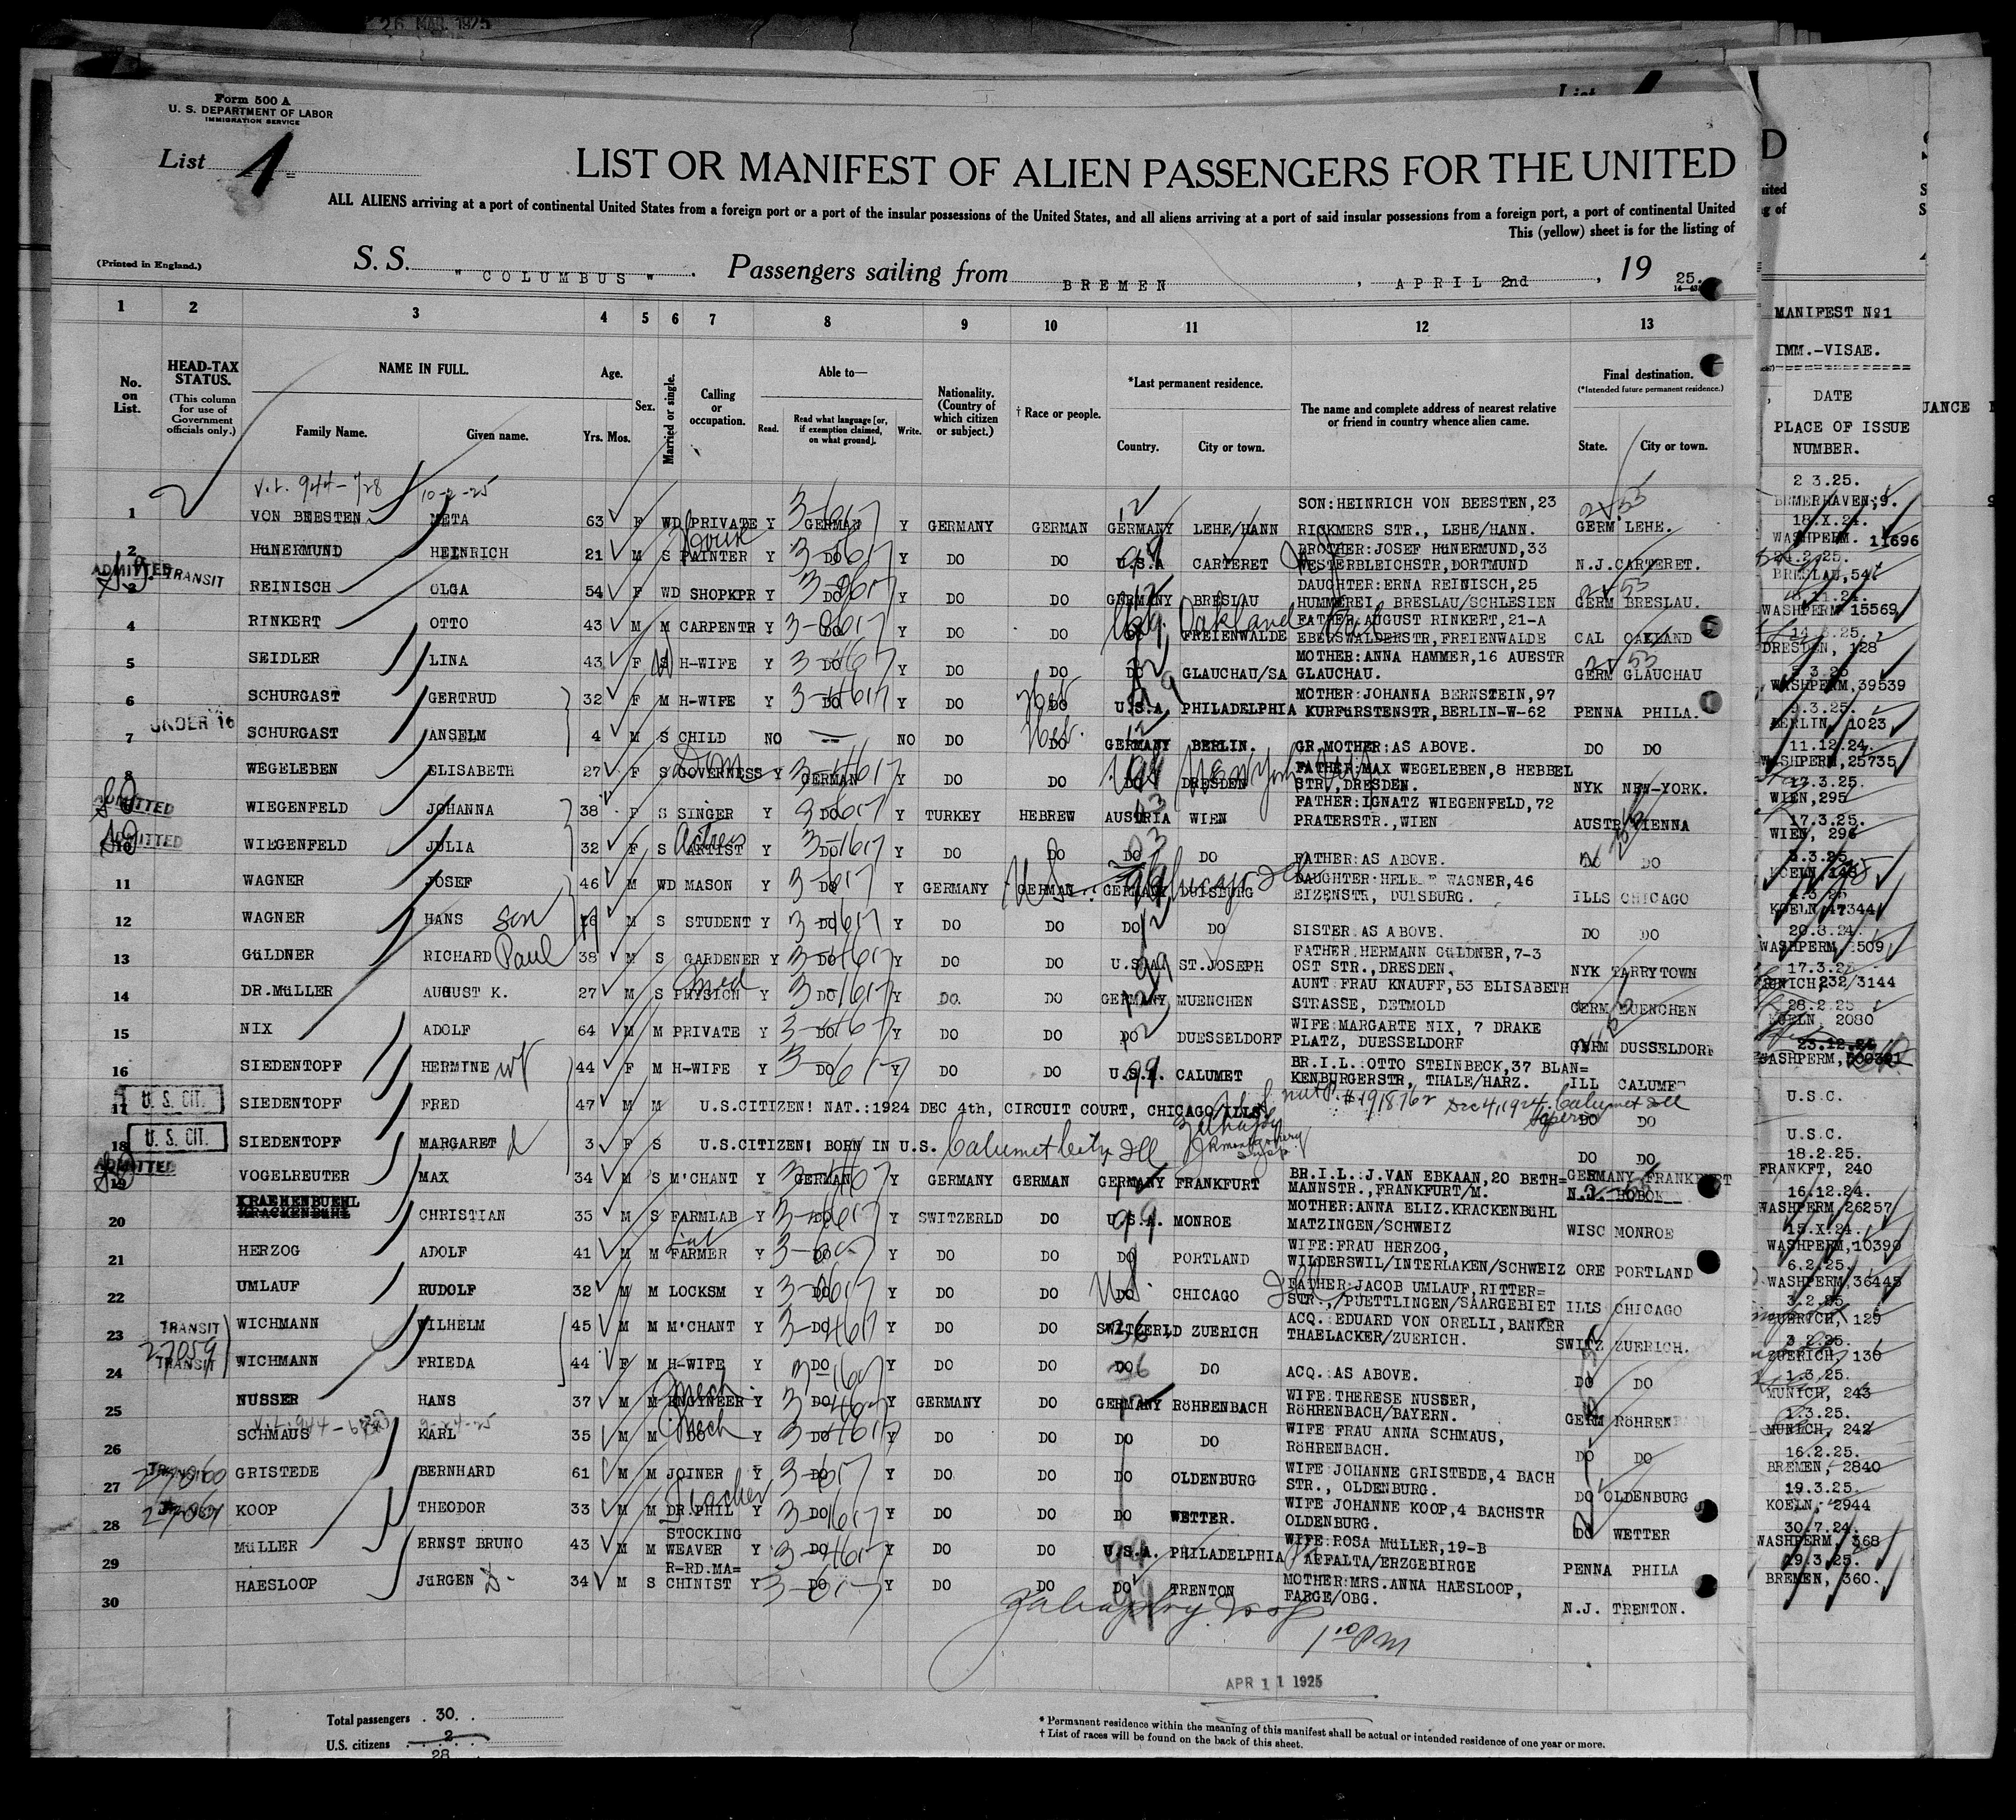 26 MAR. 1925
Form 500 A
U. S. DEPARTMENT OF LABOR
IMMIGRATION SERVICE
List 1
LIST OR MANIFEST OF ALIEN PASSENGERS FOR THE UNITED
ALL ALIENS arriving at a port of continental United States from a foreign port or a port of the insular possessions of the United States, and all aliens arriving at a port of said insular possessions from a foreign port, a port of continental United
This (yellow) sheet is for the listing of
(Printed in England.)
S. S. "COLUMBUS". Passengers sailing from BREMEN, APRIL 2nd, 1925.
1 2 3 4 5 6 7 8 9 10 11 12 13
MANIFEST No1
IMM.-VISAE.
DATE
PLACE OF ISSUE
NUMBER.
No. on List.
HEAD-TAX STATUS.
(This column for use of Government officials only.)
NAME IN FULL.
Family Name. Given name.
Age.
Yrs. Mos.
Sex.
Married or single.
Calling or occupation.
Able to—
Read. Read what language [or, if exemption claimed, on what ground]. Write.
Nationality. (Country of which citizen or subject.)
† Race or people.
*Last permanent residence.
Country. City or town.
The name and complete address of nearest relative or friend in country whence alien came.
Final destination.
(*Intended future permanent residence.)
State. City or town.
10-2-25
1 VON BEESTEN META 63 F WD PRIVATE Y GERMAN Y GERMANY GERMAN GERMANY LEHE/HANN SON:HEINRICH VON BEESTEN,23 RICKMERS STR., LEHE/HANN. GERM LEHE. 2 3.25. BRMERHAVEN,9.
2 HüNERMUND HEINRICH 21 M S PAINTER Y DO Y DO DO U.S.A CARTERET BROTHER:JOSEF HüNERMUND,33 WESTERBLEICHSTR,DORTMUND N.J.CARTERET. 18.X.24. WASHPERM. 11696
ADMITTED TRANSIT
3 REINISCH OLGA 54 F WD SHOPKPR Y DO Y DO DO GERMANY BRESLAU DAUGHTER:ERNA REINISCH,25 HUMMEREI, BRESLAU/SCHLESIEN GERM BRESLAU. 24.2.25. BRESLAU,54
4 RINKERT OTTO 43 M M CARPENTR Y DO Y DO DO FREIENWALDE Oakland FATHER AUGUST RINKERT,21-A EBERSWALDERSTR,FREIENWALDE CAL OAKLAND WASHPERM 15569
5 SEIDLER LINA 43 F S H-WIFE Y DO Y DO DO DO GLAUCHAU/SA MOTHER:ANNA HAMMER,16 AUESTR GLAUCHAU. GERM GLAUCHAU DRESDEN, 128
6 SCHURGAST GERTRUD 32 F M H-WIFE Y DO Y DO DO U.S.A. PHILADELPHIA MOTHER:JOHANNA BERNSTEIN,97 KURFüRSTENSTR,BERLIN-W-62 PENNA PHILA. WASHPERM,39539
UNDER 16
7 SCHURGAST ANSELM 4 M S CHILD NO NO DO DO GERMANY BERLIN. GR.MOTHER:AS ABOVE. DO DO 9.3.25. BERLIN, 1023
8 WEGELEBEN ELISABETH 27 F S GOVERNESS Y GERMAN Y DO DO DO DRESDEN New York FATHER:MAX WEGELEBEN,8 HEBBEL STR.,DRESDEN. NYK NEW-YORK. 11.12.24. WASHPERM,25735
ADMITTED
WIEGENFELD JOHANNA 38 F S SINGER Y DO Y TURKEY HEBREW AUSTRIA WIEN FATHER:IGNATZ WIEGENFELD,72 PRATERSTR.,WIEN AUSTR VIENNA 17.3.25. WIEN,295
ADMITTED
10 WIEGENFELD JULIA 32 F S ARTIST Actress Y DO Y DO DO DO DO FATHER:AS ABOVE. DO DO 17.3.25. WIEN, 296
11 WAGNER JOSEF 46 M WD MASON Y DO Y GERMANY GERMAN GERMANY DUISBURG DAUGHTER:HELENE WAGNER,46 EIZENSTR, DUISBURG. ILLS CHICAGO
12 WAGNER HANS son 16 M S STUDENT Y DO Y DO DO DO DO SISTER AS ABOVE. DO DO KOELN, 17344
13 GüLDNER RICHARD Paul 38 M S GARDENER Y DO Y DO DO U.S.A. ST.JOSEPH FATHER HERMANN GüLDNER,7-3 OST STR.,DRESDEN. NYK TARRYTOWN 20.8.24. WASHPERM, 2509
14 DR.MüLLER AUGUST K. 27 M S PHYSICN Y DO Y DO. DO GERMANY MUENCHEN AUNT FRAU KNAUFF,53 ELISABETH STRASSE, DETMOLD GERM MUENCHEN MUNICH,232/3144
15 NIX ADOLF 64 M M PRIVATE Y DO Y DO DO DO DUESSELDORF WIFE:MARGARTE NIX, 7 DRAKE PLATZ, DUESSELDORF GERM DUSSELDORF 28.2.25 KOELN, 2080
16 SIEDENTOPF HERMINE wf 44 F M H-WIFE Y DO Y DO DO U.S.A. CALUMET BR.I.L.:OTTO STEINBECK,37 BLAN= KENBURGERSTR, THALE/HARZ. ILL CALUMET 23.12.24 WASHPERM,
U. S. CIT.
17 SIEDENTOPF FRED 47 M M U.S.CITIZEN! NAT.:1924 DEC 4th, CIRCUIT COURT, CHICAGO ILLS. Dec 4, 1924. Calumet Ill DO DO U.S.C.
U. S. CIT.
18 SIEDENTOPF MARGARET d 3 F S U.S.CITIZEN! BORN IN U.S. Calumet City Ill DO DO U.S.C.
ADMITTED
19 VOGELREUTER MAX 34 M S M'CHANT Y GERMAN Y GERMANY GERMAN GERMANY FRANKFURT BR.I.L.:J.VAN EBKAAN,20 BETH= MANNSTR.,FRANKFURT/M. GERMANY FRANKFURT N.J. HOBOK 18.2.25. FRANKFT, 240
KRAEHENBUEHL
20 KRACKENBüHL CHRISTIAN 35 M S FARMLAB Y DO Y SWITZERLD DO U.S.A. MONROE MOTHER:ANNA ELIZ.KRACKENBüHL MATZINGEN/SCHWEIZ WISC MONROE 16.12.24. WASHPERM 26257
21 HERZOG ADOLF 41 M M FARMER Y DO Y DO DO DO PORTLAND WIFE:FRAU HERZOG, WILDERSWIL/INTERLAKEN/SCHWEIZ ORE PORTLAND 15.X.24. WASHPERM,10390
22 UMLAUF RUDOLF 32 M M LOCKSM Y DO Y DO DO DO CHICAGO FATHER:JACOB UMLAUF,RITTER= STR.,/PUETTLINGEN/SAARGEBIET ILLS CHICAGO 6.2.25. WASHPERM,36445
TRANSIT
23 WICHMANN WILHELM 45 M M M'CHANT Y DO Y DO DO SWITZERLD ZUERICH ACQ.:EDUARD VON ORELLI,BANKER THAELACKER/ZUERICH. SWITZ ZUERICH. 3.2.25. ZUERICH, 129
27059 TRANSIT
24 WICHMANN FRIEDA 44 F M H-WIFE Y DO Y DO DO DO DO ACQ.:AS ABOVE. DO DO 3.2.25. ZUERICH, 130
25 NUSSER HANS 37 M M ENGINEER Mech. Y DO Y GERMANY DO GERMANY RöHRENBACH WIFE:THERESE NUSSER, RöHRENBACH/BAYERN. GERM RöHRENBACH 1.3.25. MUNICH, 243
26 SCHMAUS KARL 35 M M DO Mech Y DO Y DO DO DO DO WIFE FRAU ANNA SCHMAUS, RöHRENBACH. DO DO 1.3.25. MUNICH, 242
27060 TRANSIT
27 GRISTEDE BERNHARD 61 M M JOINER Y DO Y DO DO DO OLDENBURG WIFE JOHANNE GRISTEDE,4 BACH STR., OLDENBURG. DO OLDENBURG 16.2.25. BREMEN, 2840
27061
28 KOOP THEODOR 33 M M DR.PHIL Teacher Y DO Y DO DO DO WETTER. WIFE JOHANNE KOOP,4 BACHSTR OLDENBURG. DO WETTER 19.3.25. KOELN, 2944
29 MüLLER ERNST BRUNO 43 M M STOCKING WEAVER Y DO Y DO DO U.S.A. PHILADELPHIA WIFE:ROSA MüLLER,19-B AFFALTA/ERZGEBIRGE PENNA PHILA 30.7.24. WASHPERM, 368
30 HAESLOOP JüRGEN D. 34 M S R-RD.MA= CHINIST Y DO Y DO DO DO TRENTON MOTHER:MRS.ANNA HAESLOOP, FARGE/OBG. N.J. TRENTON. 19.3.25. BREMEN, 360.
1 10 PM
APR 11 1925
Total passengers . 30. .
U.S. citizens 2
28
* Permanent residence within the meaning of this manifest shall be actual or intended residence of one year or more.
† List of races will be found on the back of this sheet.